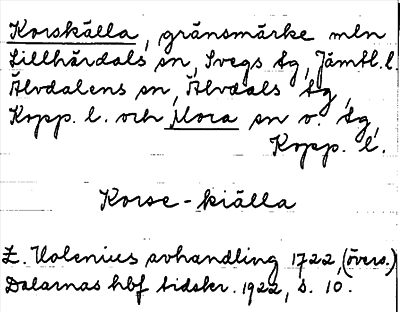 Korskälla, gränsmärke mln
Lillhärdals sn, Svegs tg, Jämtl. l.
Älvdalens sn, Älvdals tg,
Kopp. l. och Mora sn o. tg,
Kopp. l.
Korse-kiälla
Z. Holenius avhandling 1722, (övers.)
Dalarnas hbf tidskr. 1922, s. 10.